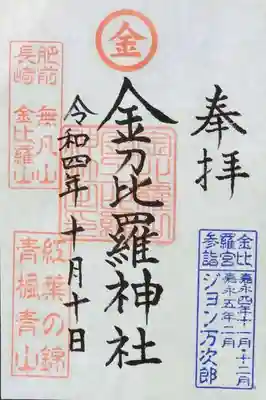 金
奉拝
金刀比羅神社
令和四年十月十日
肥前 無凡山
長崎 金比羅山
紅葉の錦
青楓青山
金比羅宮参詣
嘉永四年十一月・十二月
嘉永五年二月
ジョン万次郎